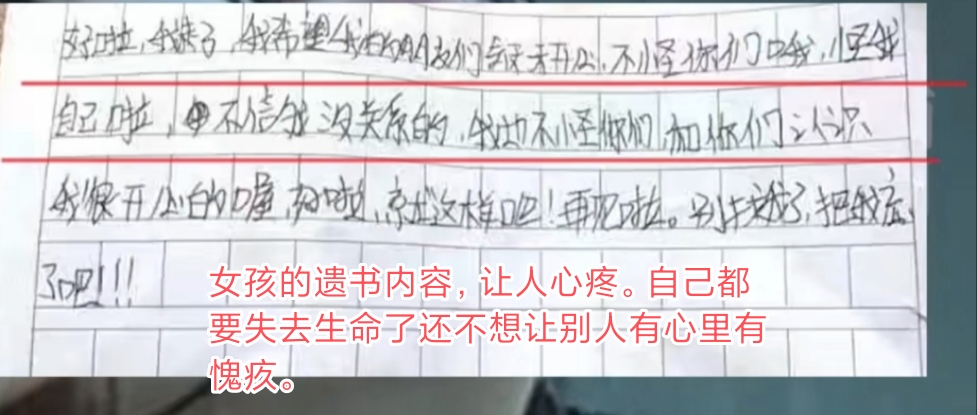 好啦，我走了，我希望我的朋友们每天开心，不怪你们口我，怪我
自己啦，不信我没关系的，我也不怪你们，和你们认识
我很开心的喔，好啦，就这样吧！再见啦。别找我了，把我忘
了吧!!!
女孩的遗书内容，让人心疼。自己都
要失去生命了还不想让别人有心里有
愧疚。